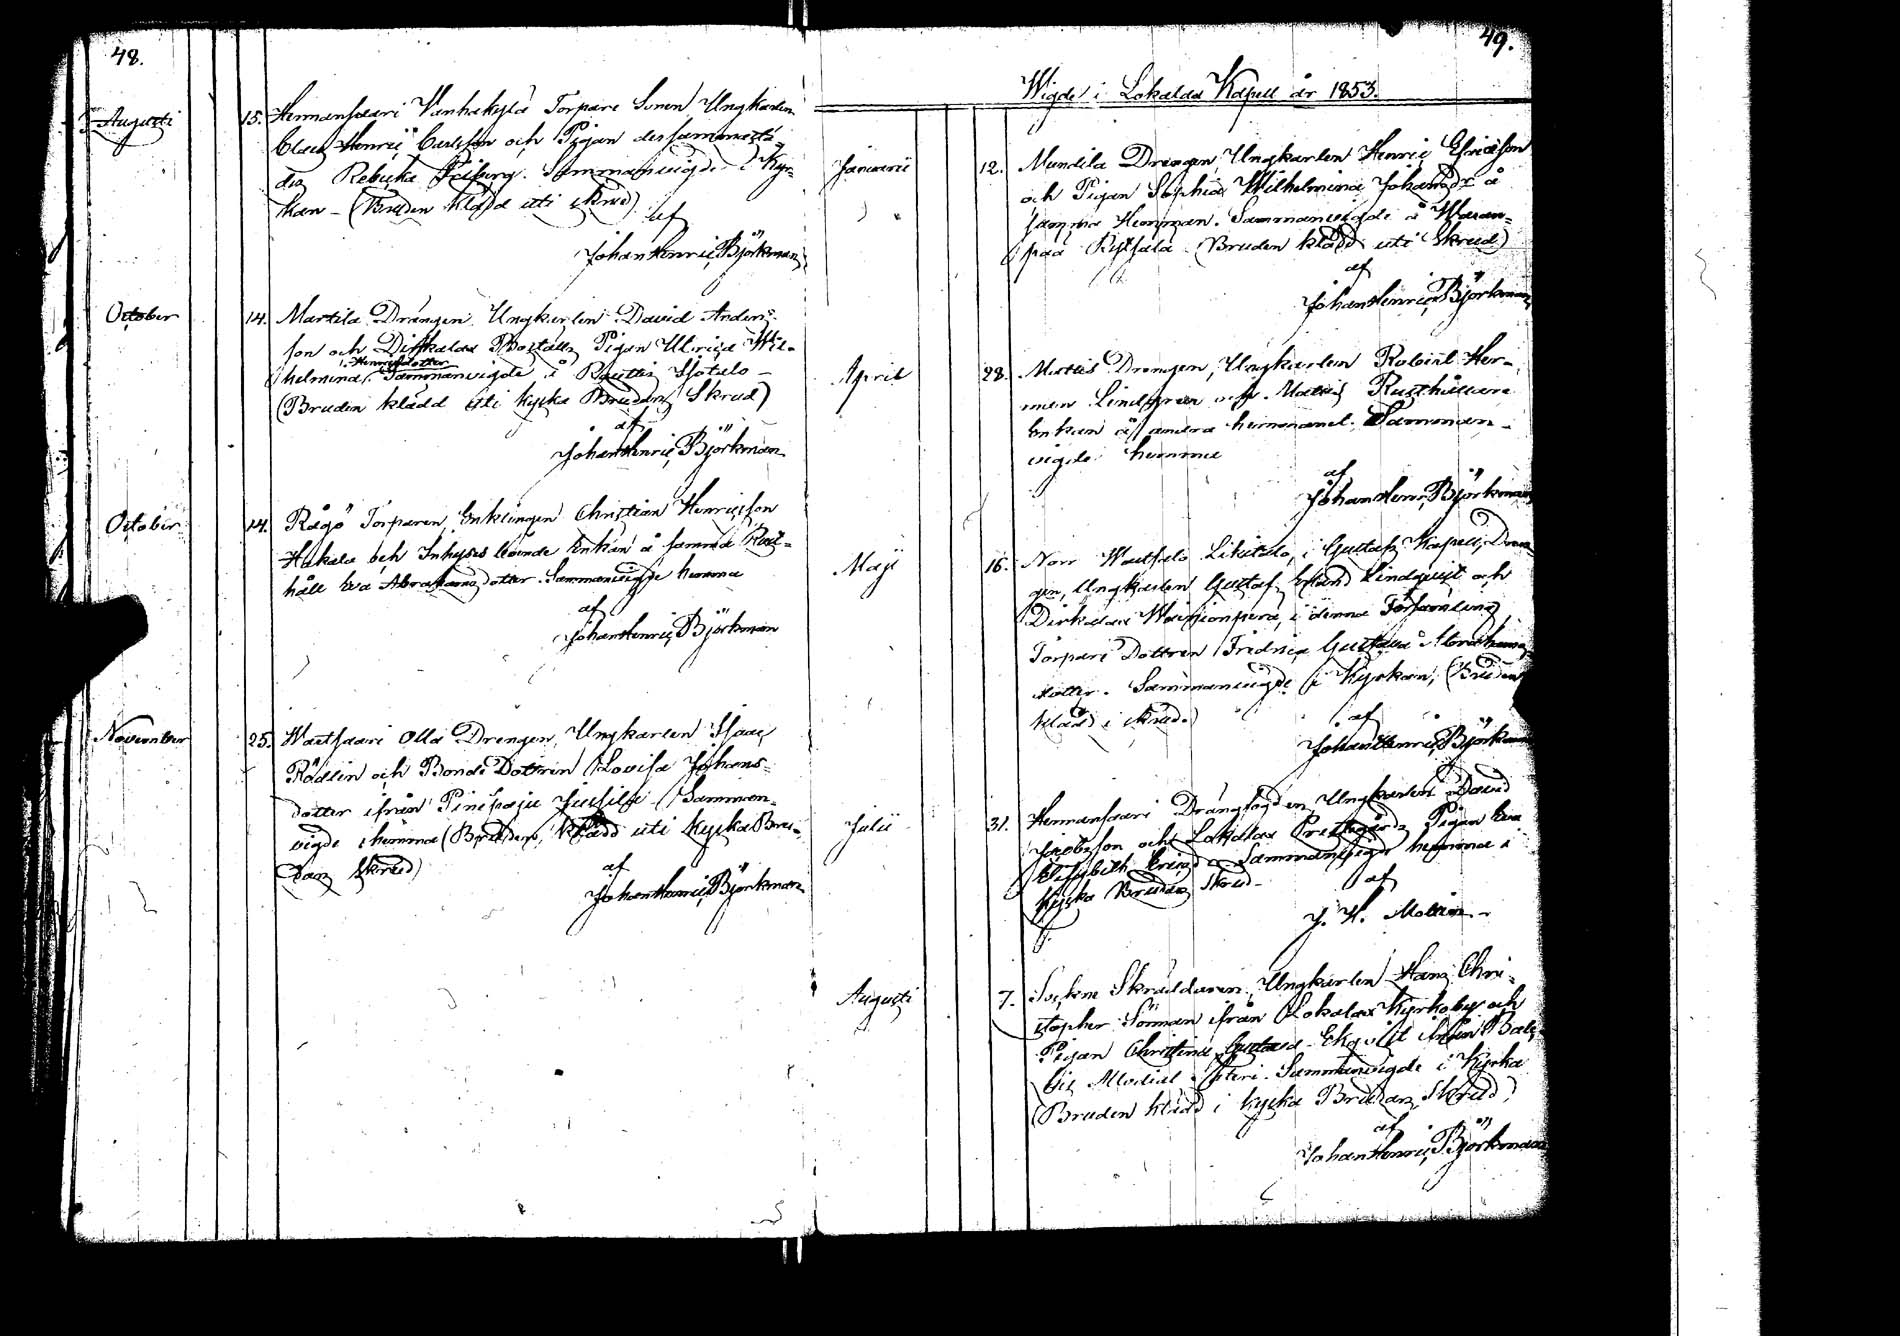 48.
Augusti 15. Hermansaari Vanhakylä Torpare Sonen Ungkarlen
Claes Henric Carlsson och Pigan dersammastä-
des Rebecka Friberg. Sammanvigde i Kyr-
kan - (Bruden klädd uti skrud)
af
Johan Henric Björkman
October 14. Martila Drängen Ungkarlen David Anders-
son och Pigan Ulrica Wil-
Henricsdotter
helmina. Sammanvigde i
(Bruden klädd uti kyska Brudars Skrud)
af
Johan Henric Björkman
October 14. Rågö Torparen, Enklingen Christian Henricsson
Hakala och Inhyses Enkan å samma Rust-
håll Eva Abrahams dotter. Sammanvigde hemma
af
Johan Henric Björkman
November 25. Olla Drengen, Ungkarlen Isaac
Rödlin och Bonde Dottren Lovisa Johans-
dotter ifrån Samman-
vigde hemma (Bruden klädd uti kyska Bru-
dars Skrud)
af
Johan Henric Björkman
49.
Wigde i Lokalax Kapell år 1853.
Januarii 12. Mundila Drängen, Ungkarlen Henric Ericsson
och Pigan Sophia Wilhelmina Johansdr å
samma Hemman. Sammanvigde å
(Bruden klädd uti Skrud)
af
Johan Henric Björkman
April 28. Drengen, Ungkarlen Robert Her-
man Lindgren och Rusthållare
Enkan å andra hemmanet. Samman-
vigde hemma
af
Johan Henric Björkman
Maji 16. Norr i Gustafs Kapell, Dren-
gen, Ungkarlen Gustaf Lindqvist och
Dirkalax i denna Församling
Torpare Dottren Fredrica Gustava
dotter. Sammanvigde i Kyrkan, (Bruden
klädd i skrud.)
af
Johan Henric Björkman
Julii 31. Hermansaari Drängfogden, Ungkarlen David
Jacobsson och Lokalax Prestgårds Pigan Eva
Elisabeth Ericsdr Sammanvigde hemma i
kyska Brudars Skrud-
af
J. H. Molin
Augusti 7. Sockne Skräddaren, Ungkarlen Hans Chri-
stopher Sörman ifrån Lokalax Kyrkoby och
Pigan Christina Gustava Ekqvist ifrån
Sammanvigde i Kyrka
(Bruden klädd i kyska Brudars Skrud)
af
Johan Henric Björkman